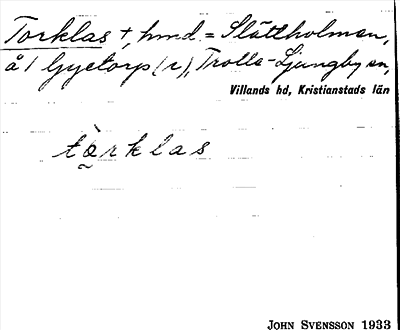 Torklas †, hmd. = Slättholmen,
å / Gyetorp (r), Trolle-Ljungby sn,
Villands hd, Kristianstads län
tò̰rklas
JOHN SVENSSON 1933